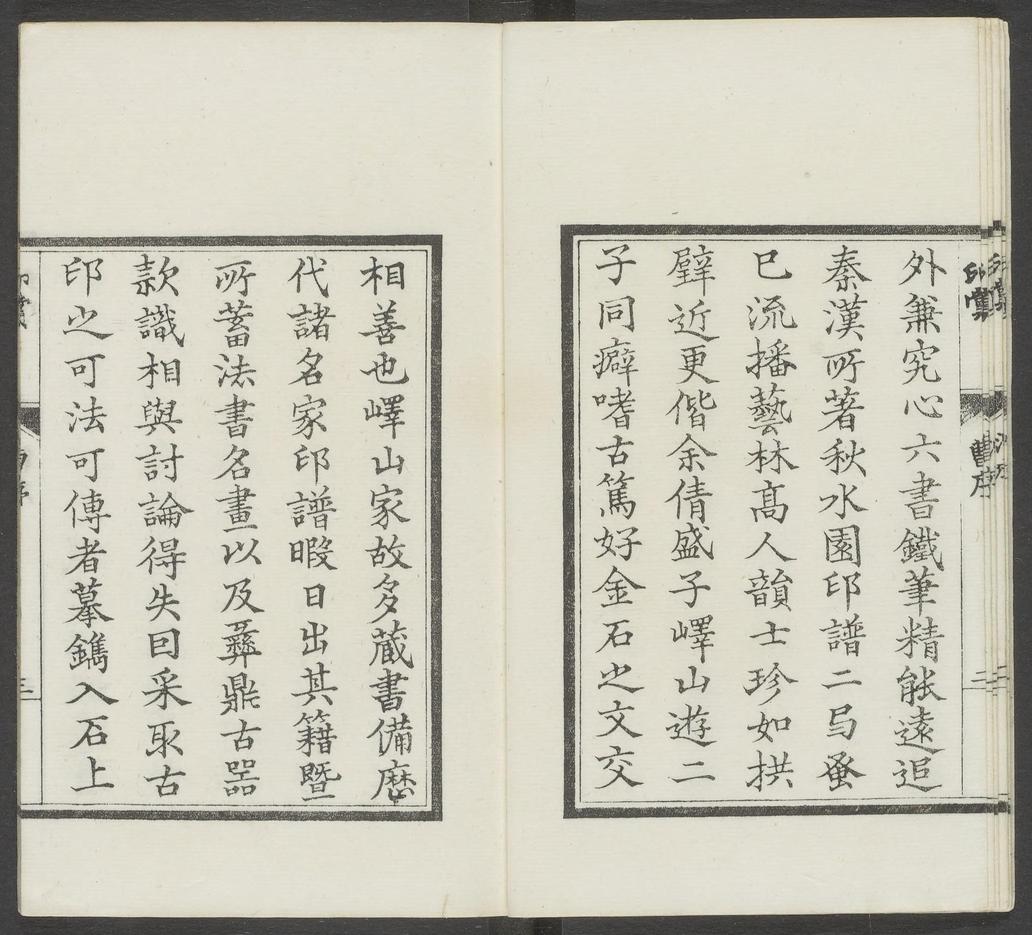 印彙
曹序
二
外兼究心六書鐵筆精能遠追
秦漢所著秋水園印譜二弓蚤
已流播藝林高人韻士珍如拱
璧近更偕余倩盛子嶧山遊二
子同癖嗜古篤好金石之文交
相善也嶧山家故多藏書備歷
代諸名家印譜暇日出其籍暨
所蓄法書名畫以及彝鼎古器
款識相與討論得失囙采取古
印之可法可傳者摹鐫入石上
三